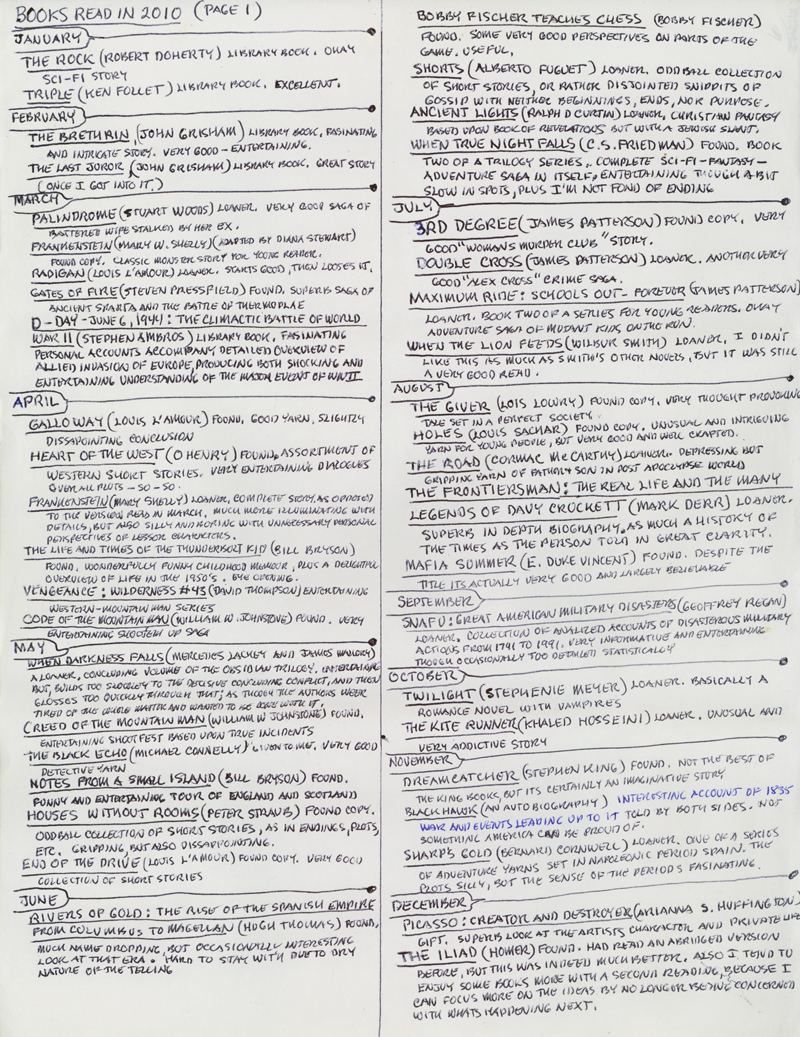 BOOKS READ IN 2010 (PAGE 1)
JANUARY
THE ROCK (ROBERT DOHERTY) LIBRARY BOOK. OKAY
SCI-FI STORY
TRIPLE (KEN FOLLET) LIBRARY BOOK. EXCELLENT.
FEBRUARY
THE BRETHRIN, (JOHN GRISHAM) LIBRARY BOOK, FASINATING
AND INTRICATE STORY. VERY GOOD - ENTERTAINING.
THE LAST JUROR (JOHN GRISHAM) LIBRARY BOOK. GREAT STORY
(ONCE I GOT INTO IT.)
MARCH
PALINDROME (STUART WOODS) LOANER. VERY GOOD SAGA OF
BATTERED WIFE STALKED BY HER EX.
FRANKENSTEIN (MARY W. SHELLY) (ADAPTED BY DIANA STEWART)
FOUND COPY. CLASSIC MONSTER STORY FOR YOUNG READER.
RADIGAN (LOUIS L'AMOUR) LOANER. STARTS GOOD, THEN LOOSES IT.
GATES OF FIRE (STEVEN PRESSFIELD) FOUND. SUPERB SAGA OF
ANCIENT SPARTA AND THE BATTLE OF THERMOPLAE
D-DAY-JUNE 6, 1944: THE CLIMACTIC BATTLE OF WORLD
WAR II (STEPHEN AMBROS) LIBRARY BOOK. FASINATING
PERSONAL ACCOUNTS ACCOMPANY DETAILED OVERVIEW OF
ALLIED INVASION OF EUROPE, PRODUCING BOTH SHOCKING AND
ENTERTAINING UNDERSTANDING OF THE MAJOR EVENT OF WWII.
APRIL
GALLOWAY (LOUIS L'AMOUR) FOUND. GOOD YARN, SLIGHTLY
DISSAPOINTING CONCLUSION
HEART OF THE WEST (O HENRY) FOUND, ASSORTMENT OF
WESTERN SHORT STORIES. VERY ENTERTAINING DIALOGUES
OVERALL PLOTS - SO-SO.
FRANKENSTEIN (MARY SHELLY) LOANER, COMPLETE STORY, AS OPPOSED
TO THE VERSION READ IN MARCH, MUCH MORE ILLUMINATING WITH
DETAILS, BUT ALSO SILLY AND BORING WITH UNNECESSARY PERSONAL
PERSPECTIVES OF LESSOR CHARACTERS.
THE LIFE AND TIMES OF THE THUNDERBOLT KID (BILL BRYSON)
FOUND, WONDERFULLY FUNNY CHILDHOOD MEMOUR, PLUS A DELIGHTFUL
OVERVIEW OF LIFE IN THE 1950'S. EYE OPENING.
VENGEANCE: WILDERNESS #43 (DAVID THOMPSON) ENTERTAINING
WESTERN-MOUNTAIN MAN SERIES
CODE OF THE MOUNTAIN MAN (WILLIAM W. JOHNSTONE) FOUND. VERY
ENTERTAINING SHOOTEM UP SAGA
MAY
WHEN DARKNESS FALLS (MERCEDES LACKEY AND JAMES MALLORY)
A LOANER, CONCLUDING VOLUME OF THE OBSIDIAN TRILOGY. ENTERTAINING
BUT, BUILDS TOO SLOWLY TO THE DECISIVE CONCLUDING CONFLICT, AND THEN
GLOSSES TOO QUICKLY THROUGH THAT; AS THOUGH THE AUTHORS WEER
TIRED OF THE WHOLE MATTER AND WANTED TO BE DONE WITH IT.
CREED OF THE MOUNTAIN MAN (WILLIAM W JOHNSTONE) FOUND.
ENTERTAINING SHOOTFEST BASED UPON TRUE INCIDENTS
THE BLACK ECHO (MICHAEL CONNELLY) GIVEN TO ME. VERY GOOD
DETECTIVE YARN
NOTES FROM A SMALL ISLAND (BILL BRYSON) FOUND.
FUNNY AND ENTERTAINING TOUR OF ENGLAND AND SCOTLAND
HOUSES WITHOUT ROOMS (PETER STRAUB) FOUND COPY.
ODDBALL COLLECTION OF SHORT STORIES, AS IN ENDINGS, PLOTS,
ETC. GRIPPING, BUT ALSO DISSAPPOINTING.
END OF THE DRIVE (LOUIS L'AMOUR) FOUND COPY. VERY GOOD
COLLECTION OF SHORT STORIES
JUNE
RIVERS OF GOLD: THE RISE OF THE SPANISH EMPIRE
FROM COLUMBUS TO MAGELLAN (HUGH THOMAS) FOUND,
MUCH NAME DROPPING, BUT OCCASIONALLY INTERESTING
LOOK AT THAT ERA. HARD TO STAY WITH DUE TO DRY
NATURE OF THE TELLING
BOBBY FISCHER TEACHES CHESS (BOBBY FISCHER)
FOUND. SOME VERY GOOD PERSPECTIVES ON PARTS OF THE
GAME. USEFUL.
SHORTS (ALBERTO FUGUET) LOANER. ODDBALL COLLECTION
OF SHORT STORIES, OR RATHER DISJOINTED SNIPPITS OF
GOSSIP WITH NEITHER BEGINNINGS, ENDS, NOR PURPOSE.
ANCIENT LIGHTS (RALPH D CURTIN) LOANER, CHRISTIAN FANTASY
BASED UPON BOOK OF REVELATIONS BUT WITH A JEWISH SLANT.
WHEN TRUE NIGHT FALLS (C.S. FRIEDMAN) FOUND. BOOK
TWO OF A TRILOGY SERIES, COMPLETE SCI-FI-FANTASY-
ADVENTURE SAGA IN ITSELF, ENTERTAINING THOUGH A BIT
SLOW IN SPOTS, PLUS I'M NOT FOND OF ENDING
JULY
3RD DEGREE (JAMES PATTERSON) FOUND COPY. VERY
GOOD "WOMANS MURDER CLUB" STORY.
DOUBLE CROSS (JAMES PATTERSON) LOANER. ANOTHER VERY
GOOD "ALEX CROSS" CRIME SAGA.
MAXIMUM RIDE: SCHOOLS OUT- FOREVER (JAMES PATTERSON)
LOANER. BOOK TWO OF A SERIES FOR YOUNG READERS. OKAY
ADVENTURE SAGA OF MUTANT KIDS ON THE RUN.
WHEN THE LION FEEDS (WILBUR SMITH) LOANER, I DIDN'T
LIKE THIS AS MUCH AS SMITH'S OTHER NOVELS, BUT IT WAS STILL
A VERY GOOD READ.
AUGUST
THE GIVER (LOIS LOWRY) FOUND COPY. VERY THOUGHT PROVOKING
TALE SET IN A PERFECT SOCIETY.
HOLES (LOUIS SACHAR) FOUND COPY. UNUSUAL AND INTRIGUING
YARN FOR YOUNG PEOPLE, BUT VERY GOOD AND WELL CRAFTED.
THE ROAD (CORMAC McCARTHY) LOANER. DEPRESSING BUT
GRIPPING YARN OF FATHER/SON IN POST APOCALYPSE WORLD
THE FRONTIERSMAN: THE REAL LIFE AND THE MANY
LEGENDS OF DAVY CROCKETT (MARK DERR) LOANER.
SUPERB IN DEPTH BIOGRAPHY. AS MUCH A HISTORY OF
THE TIMES AS THE PERSON TOLD IN GREAT CLARITY.
MAFIA SUMMER (E. DUKE VINCENT) FOUND. DESPITE THE
TITLE ITS ACTUALLY VERY GOOD AND LARGELY BELIEVABLE
SEPTEMBER
SNAFU: GREAT AMERICAN MILITARY DISASTERS (GEOFFREY REGAN)
LOANER, COLLECTION OF ANALIZED ACCOUNTS OF DISASTEROUS MILITARY
ACTIONS FROM 1791 TO 1991. VERY INFORMATIVE AND ENTERTAINING
THOUGH OCCASIONALLY TOO DETAILED STATISTICALLY
OCTOBER
TWILIGHT (STEPHENIE MEYER) LOANER. BASICALLY A
ROMANCE NOVEL WITH VAMPIRES
THE KITE RUNNER (KHALED HOSSEINI) LOANER. UNUSUAL AND
VERY ADDICTIVE STORY
NOVEMBER
DREAMCATCHER (STEPHEN KING) FOUND. NOT THE BEST OF
THE KING BOOKS, BUT ITS CERTAINLY AN IMAGINATIVE STORY
BLACK HAWK (AN AUTOBIOGRAPHY) INTERESTING ACCOUNT OF 1835
WAR AND EVENTS LEADING UP TO IT TOLD BY BOTH SIDES. NOT
SOMETHING AMERICA CAN BE PROUD OF.
SHARP'S GOLD (BERNARD CORNWELL) LOANER. ONE OF A SERIES
OF ADVENTURE YARNS SET IN NAPOLEONIC PERIOD SPAIN. THE
PLOTS SILLY, BUT THE SENSE OF THE PERIODS FASINATING.
DECEMBER
PICASSO: CREATOR AND DESTROYER (ARIANNA S. HUFFINGTON)
GIFT. SUPERB LOOK AT THE ARTISTS CHARACTOR AND PRIVATE LIFE
THE ILIAD (HOMER) FOUND. HAD READ AN ABRIDGED VERSION
BEFORE, BUT THIS WAS INDEED MUCH BETTER. ALSO I TEND TO
ENJOY SOME BOOKS MORE WITH A SECOND READING, BECAUSE I
CAN FOCUS MORE ON THE IDEAS BY NO LONGER BEING CONCERNED
WITH WHATS HAPPENING NEXT.